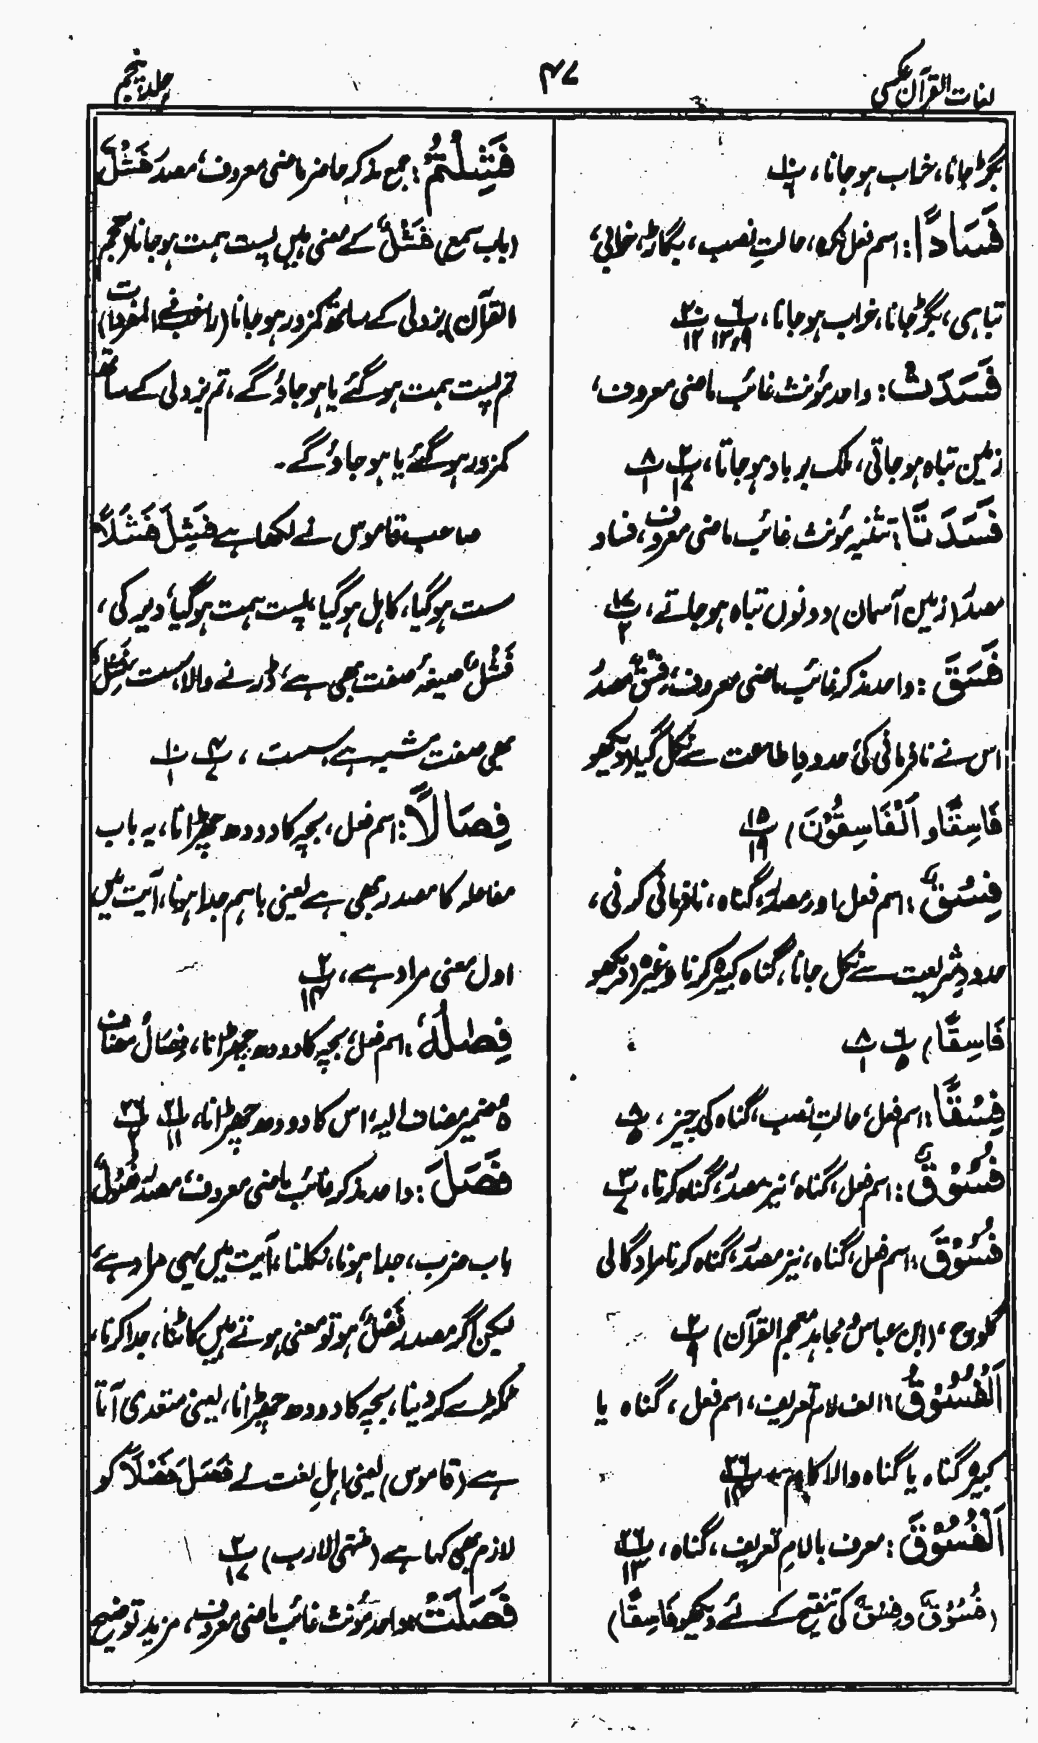 لغات القرآن عکسی
۴۷
جلد پنجم
بگڑ جانا، خراب ہو جانا، پ۲۰/۶
فَسَادًا: اسم فعل نکرہ، حالتِ نصب، بگاڑ، خرابی،
تباہی، بگڑ جانا، خراب ہو جانا، پ۶/۹و۱۳ پ۲۰/۱۲
فَسَدَتْ: واحد مؤنث غائب ماضی معروف،
زمین تباہ ہو جاتی، ملک برباد ہو جاتا، پ۲/۱۷ پ۸/۱
فَسَدَتَا: تثنیہ مؤنث غائب ماضی معروف، فساد
مصدر (زمین آسمان) دونوں تباہ ہو جاتے، پ۱۷/۲
فَسَقَ: واحد مذکر غائب ماضی معروف، فسق مصدر
اس نے نافرمانی کی حدودِ اطاعت سے نکل گیا (دیکھو
فَاسِقًا و اَلْفَاسِقُوْنَ) پ۱۵/۱۹
فِسْقٌ: اسم فعل اور مصدر، گناہ، نافرمانی کرنی،
حدودِ شریعت سے نکل جانا، گناہ کبیرہ کرنا وغیرہ (دیکھو
فَاسِقًا) پ۶/۵ پ۸/۱
فِسْقًا: اسم فعل، حالتِ نصب، گناہ کی چیز، پ۸/۵
فُسُوْقٌ: اسم فعل، گناہ، نیز مصدر، گناہ کرنا، پ۳/۷
فُسُوْقَ: اسم فعل، گناہ، نیز مصدر، گناہ کرنا مراد گالی
گلوچ، (ابن عباس و مجاہد معجم القرآن) پ۲/۹
اَلْفُسُوْقُ: الف لام تعریف، اسم فعل، گناہ یا
کبیرہ گناہ یا گناہ والا کام، پ۲۶/۱۴
اَلْفُسُوْقَ: معرف بالامِ تعریف، گناہ، پ۲۶/۱۳
(فُسُوْقٌ و فِسْقٌ کی تنقیح کے لئے دیکھو فَاسِقًا)
فَشِلْتُمْ: جمع مذکر حاضر ماضی معروف، مصدر فَشْلٌ
(باب سمع) فَشْلٌ کے معنی ہیں پست ہمت ہو جانا (معجم
القرآن) بزدلی کے ساتھ کمزور ہو جانا (راغب فی المفردات)
تم پست ہمت ہو گئے یا ہو جاؤ گے، تم بزدلی کے ساتھ
کمزور ہو گئے یا ہو جاؤ گے۔
صاحب قاموس نے لکھا ہے فَشِلَ فَشَلًا
سست ہو گیا، کاہل ہو گیا، پست ہمت ہو گیا، دیر کی،
فَشْلٌ صیغہ صفت بھی ہے، ڈرنے والا، سست، فَشِلٌ
بھی صفت مشبہ ہے، سست، پ۴/۷ پ۱۰/۱
فِصَالًا: اسم فعل، بچہ کا دودھ چھڑانا، یہ باب
مفاعلہ کا مصدر بھی ہے یعنی باہم جدا ہونا، آیت میں
اول معنی مراد ہے، پ۲/۱۴
فِصٰلُهٗ: اسم فعل، بچہ کا دودھ چھڑانا، فِصَالُ مضاف
ہٗ ضمیر مضاف الیہ، اس کا دودھ چھڑانا، پ۲۱/۱۱ پ۲۶/۲
فَصَلَ: واحد مذکر غائب ماضی معروف، مصدر فُصُوْلٌ
باب ضرب، جدا ہونا، نکلنا، آیت میں یہی مراد ہے،
لیکن اگر مصدر فَصْلٌ ہو تو معنی ہوتے ہیں کاٹنا، جدا کرنا،
ٹکڑے کر دینا، بچہ کا دودھ چھڑانا، یعنی متعدی آتا
ہے (قاموس) یعنی اہلِ لغت نے فَصَلَ فَصْلًا کو
لازم بھی کہا ہے (منتہی الارب) پ۲/۱۷
فَصَلَتْ: واحد مؤنث غائب ماضی معروف، مزید توضیح